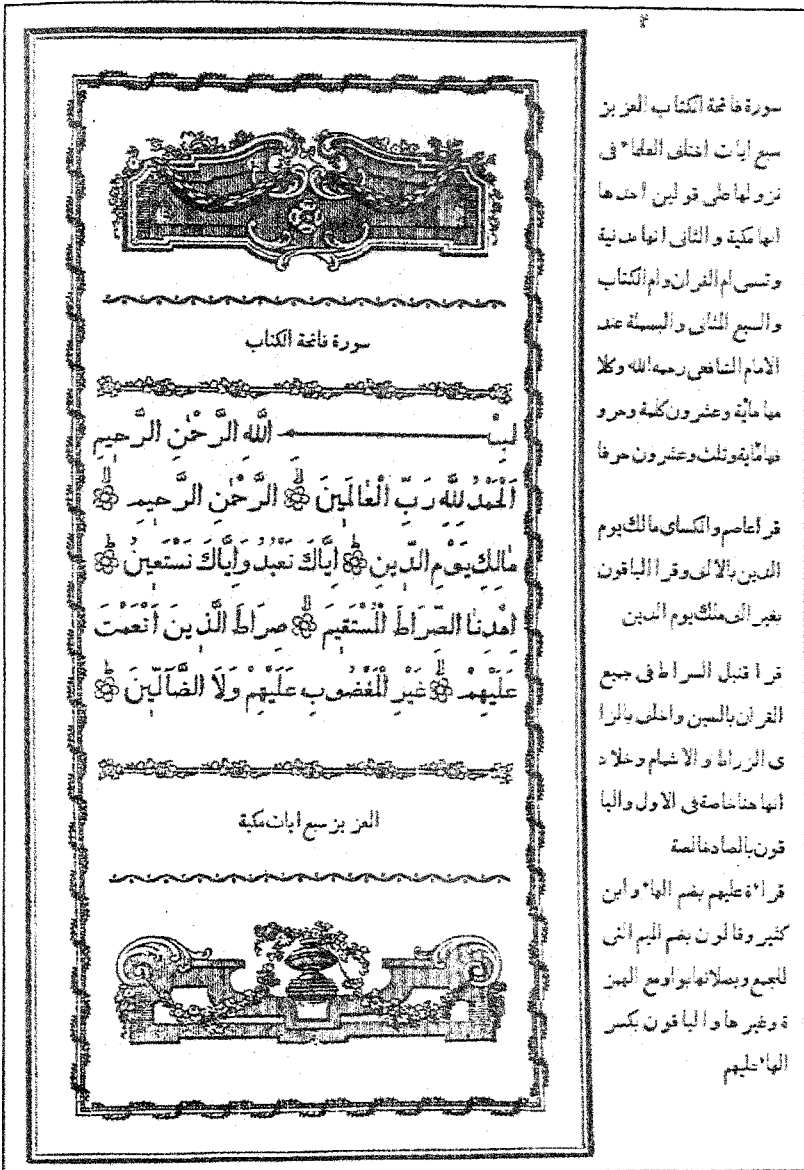 ٢
سورة فاتحة الكتاب
لبِسْـــــمِ اللَّهِ الرَّحْمٰنِ الرَّحِيمِ
اَلْحَمْدُ لِلَّهِ رَبِّ الْعَالَمِينَ الرَّحْمٰنِ الرَّحِيمِ
مَالِكِ يَوْمِ الدِّينِ اِيَّاكَ نَعْبُدُ وَاِيَّاكَ نَسْتَعِينُ
اِهْدِنَا الصِّرَاطَ الْمُسْتَقِيمَ صِرَاطَ الَّذِينَ اَنْعَمْتَ
عَلَيْهِمْ غَيْرِ الْمَغْضُوبِ عَلَيْهِمْ وَلَا الضَّالِّينَ
العزيز سبع ايات مكية
سورة فاتحة الكتاب العزيز
سبع ايات اختلف العلماء فى
نزولها على قولين احدها
انها مكية و الثانى انها مدنية
وتسمى ام القران وام الكتاب
والسبع المثانى والبسملة عند
الامام الشافعى رحمه الله وكلا
مها مأية وعشرون كلمة وحرو
فها مأية وثلث وعشرون حرفا
قرا عاصم والكساى مالك يوم
الدين بالالف وقرا الباقون
بغير الف ملك يوم الدين
قرا قنبل السراط فى جميع
القران بالسين وا خلف بالزا
ى الزراط والاشمام وخلاد
انها هنا خاصة فى الاول والبا
قون بالصاد خالصة
قراءة عليهم بضم الهاء وابن
كثير وقالون بضم الميم التى
للجمع وبصلانها بواو مع الهمز
ة وغيرها والباقون بكسر
الهاء عليهم